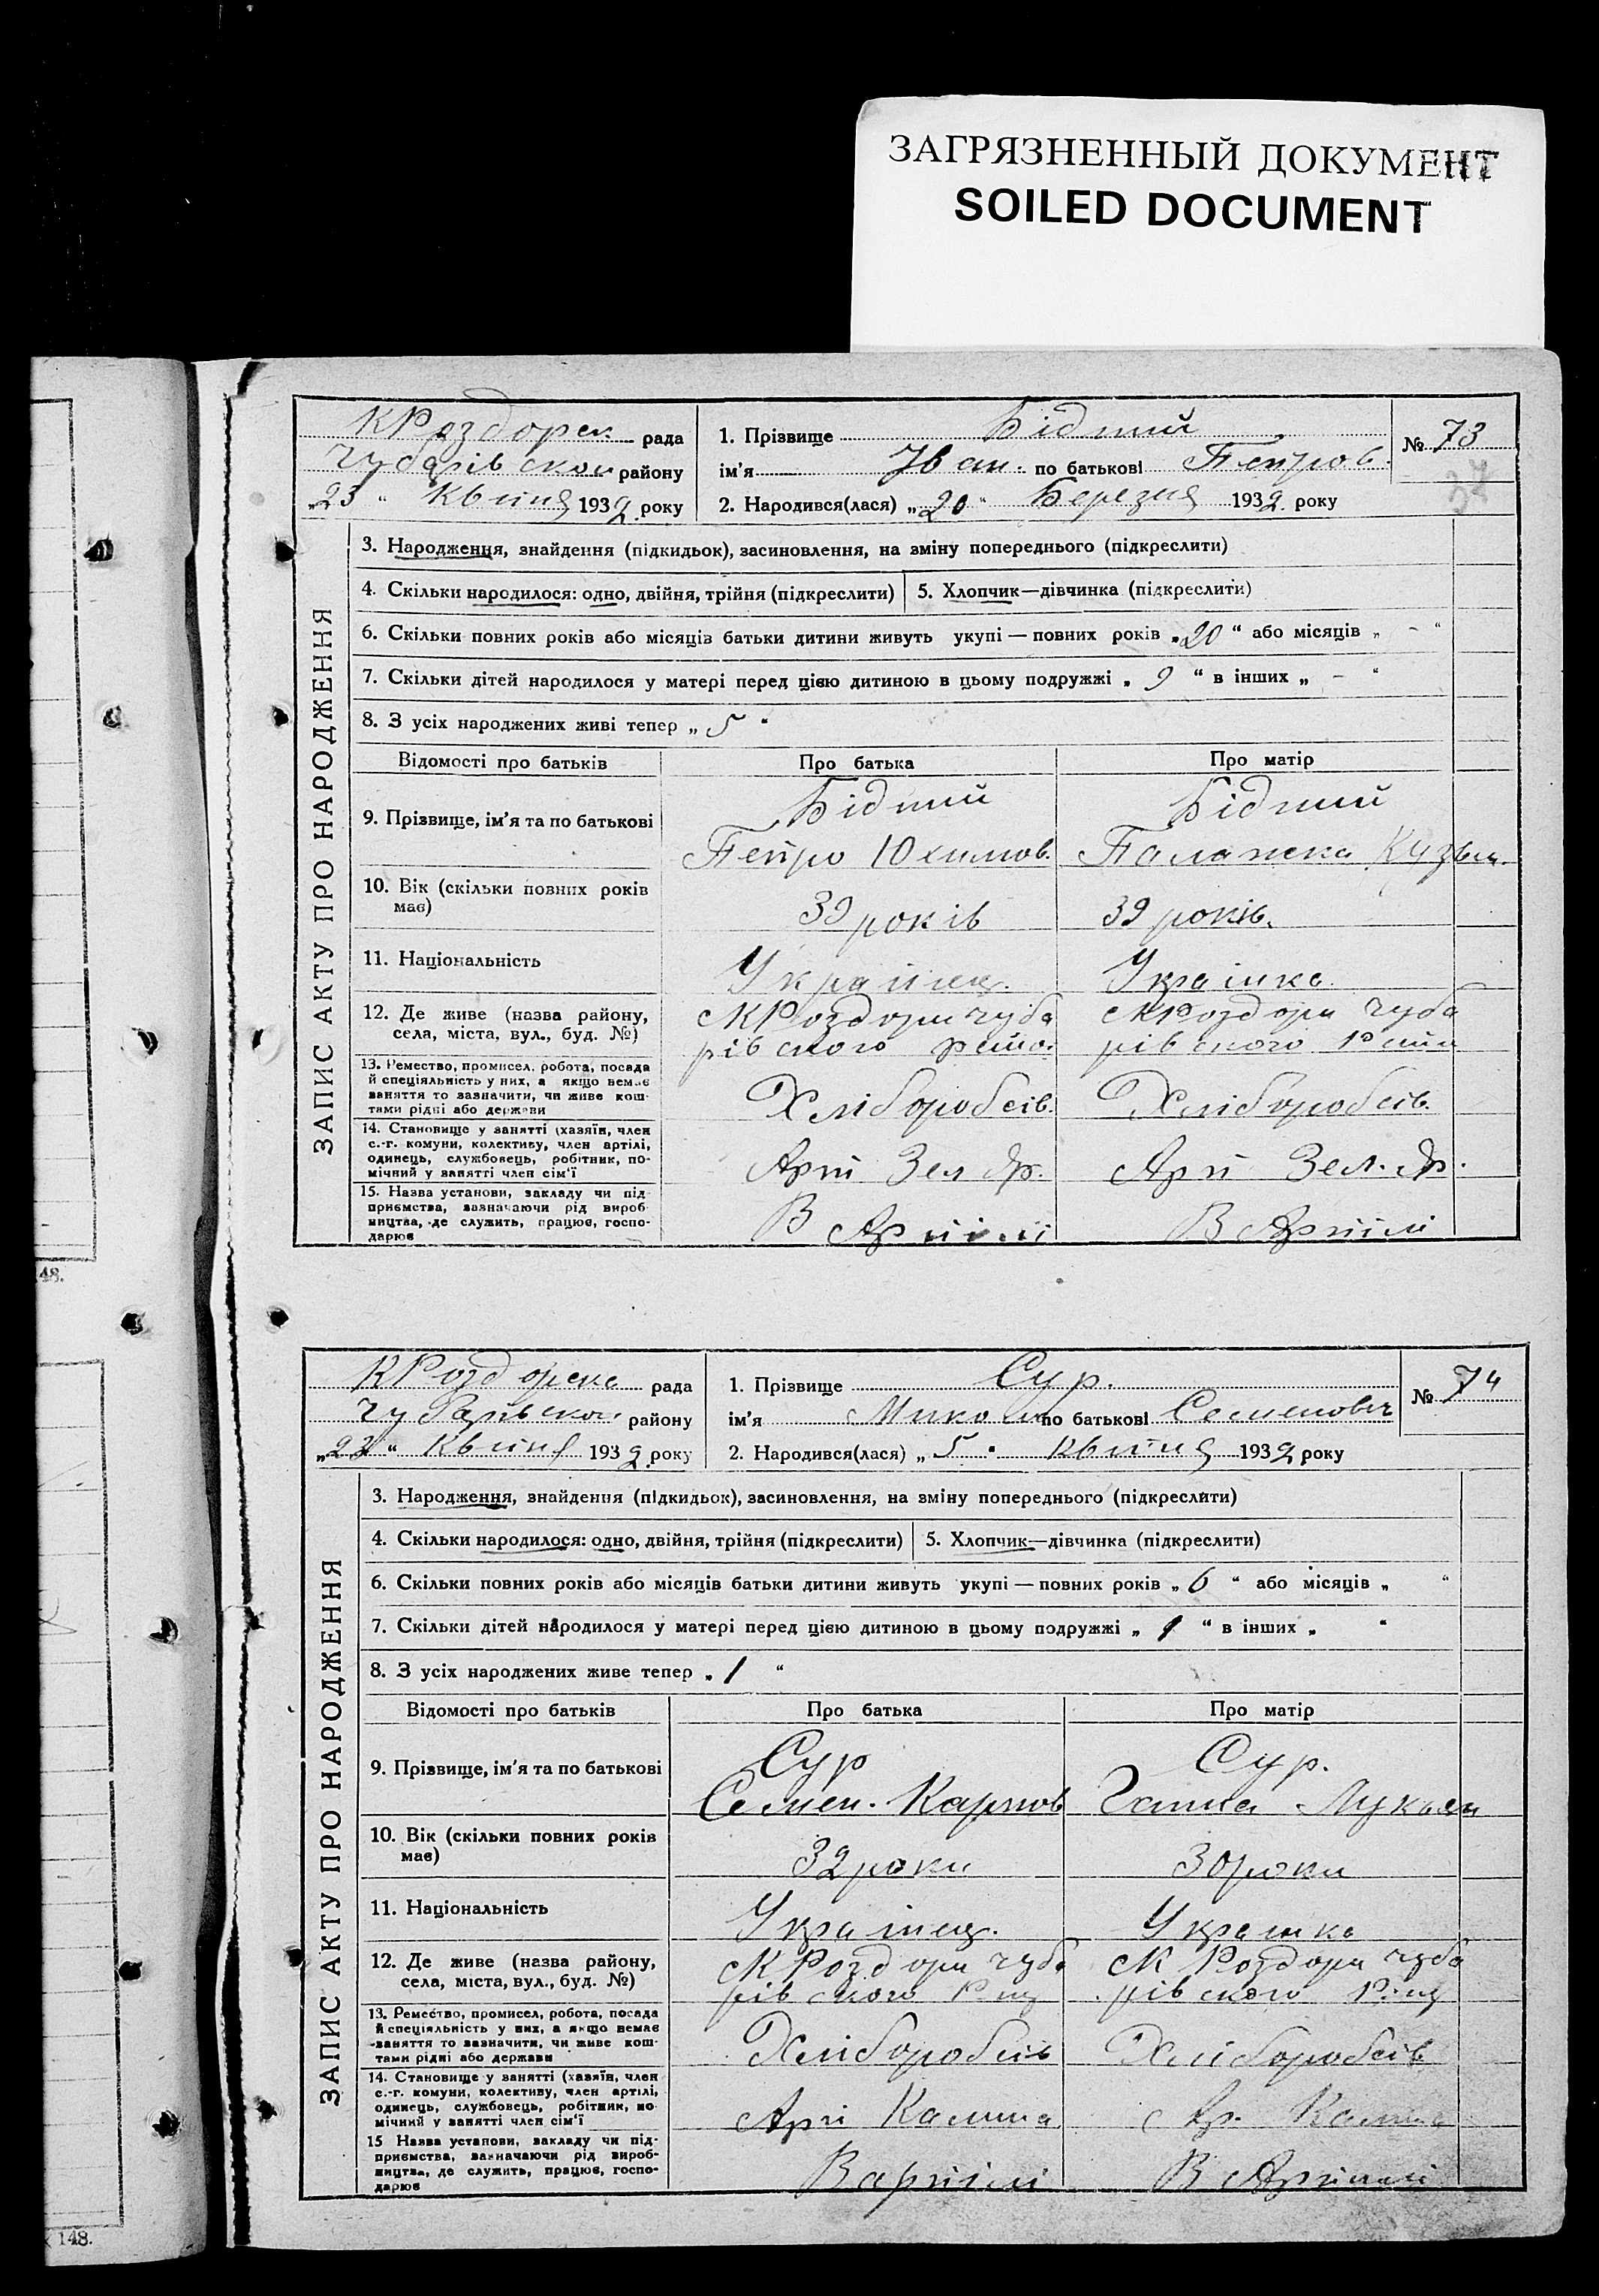 ЗАГРЯЗНЕННЫЙ ДОКУМЕНТ
SOILED DOCUMENT
48.
148.
ЗАПИС АКТУ ПРО НАРОДЖЕННЯ
КРоздорск рада
Чубарівськог району
„23“ Квітня 1932 року
1. Прізвище Бідний
ім'я Іван. по батькові Петров.
№ 73
37
2. Народився(лася) „20“ Березня 1932 року
3. Народження, знайдення (підкидьок), засиновлення, на зміну попереднього (підкреслити)
4. Скільки народилося: одно, двійня, трійня (підкреслити)
5. Хлопчик—дівчинка (підкреслити)
6. Скільки повних років або місяців батьки дитини живуть укупі — повних років „20“ або місяців „ - “
7. Скільки дітей народилося у матері перед цією дитиною в цьому подружжі „ 9 “ в інших „ - “
8. З усіх народжених живі тепер „ 5 “
Відомості про батьків Про батька Про матір
9. Прізвище, ім'я та по батькові
Бідний
Петро Юхимов.
Бідний
Палажка Кузьм.
10. Вік (скільки повних років
має)
39 років
39 років.
11. Національність
Українец.
Українка.
12. Де живе (назва району,
села, міста, вул., буд. №)
с КРоздори Чуба
рівского
с КРоздори Чуба
рівского
13. Ремество, промисел, робота, посада
й спеціяльність у них, а якщо немає
заняття то зазначити, чи живе кош-
тами рідні або держави
Хліборобсів.
Хліборобсів.
14. Становище у занятті (хазяїн, член
с.-г. комуни, колективу, член артілі,
одинець, службовець, робітник, по-
мічний у занятті член сім'ї
Арті Зел
Арті Зел.
15. Назва установи, закладу чи під-
приємства, зазначаючи рід вироб-
ництва, де служить, працює, госпо-
дарює
В Артілі
В Артілі
ЗАПИС АКТУ ПРО НАРОДЖЕННЯ
КРоздорска рада
Чубарівског району
„23“ Квітня 1932 року
1. Прізвище Сур.
ім'я Микола по батькові Семенович
№ 74
2. Народився(лася) „ 5 “ Квітня 1932 року
3. Народження, знайдення (підкидьок), засиновлення, на зміну попереднього (підкреслити)
4. Скільки народилося: одно, двійня, трійня (підкреслити)
5. Хлопчик—дівчинка (підкреслити)
6. Скільки повних років або місяців батьки дитини живуть укупі — повних років „ 6 “ або місяців „ “
7. Скільки дітей народилося у матері перед цією дитиною в цьому подружжі „ 1 “ в інших „ “
8. З усіх народжених живе тепер „ 1 “
Відомості про батьків Про батька Про матір
9. Прізвище, ім'я та по батькові
Сур
Семен. Карпов
Сур.
Ганна Лукьян
10. Вік (скільки повних років
має)
32 роки
30 роки
11. Національність
Українец.
Українка
12. Де живе (назва району,
села, міста, вул., буд. №)
с КРоздори Чуба
рівского
с КРоздори Чуба
рівского
13. Ремество, промисел, робота, посада
й спеціяльність у них, а якщо немає
заняття то зазначити, чи живе кош-
тами рідні або держави
Хліборобсів
Хліборобсів
14. Становище у занятті (хазяїн, член
с.-г. комуни, колективу, член артілі,
одинець, службовець, робітник, по-
мічний у занятті член сім'ї
Арті
Ар.
15 Назва установи, закладу чи під-
приємства, зазначаючи рід вироб-
ництва, де служить, працює, госпо-
дарює
В артілі
В Артілі